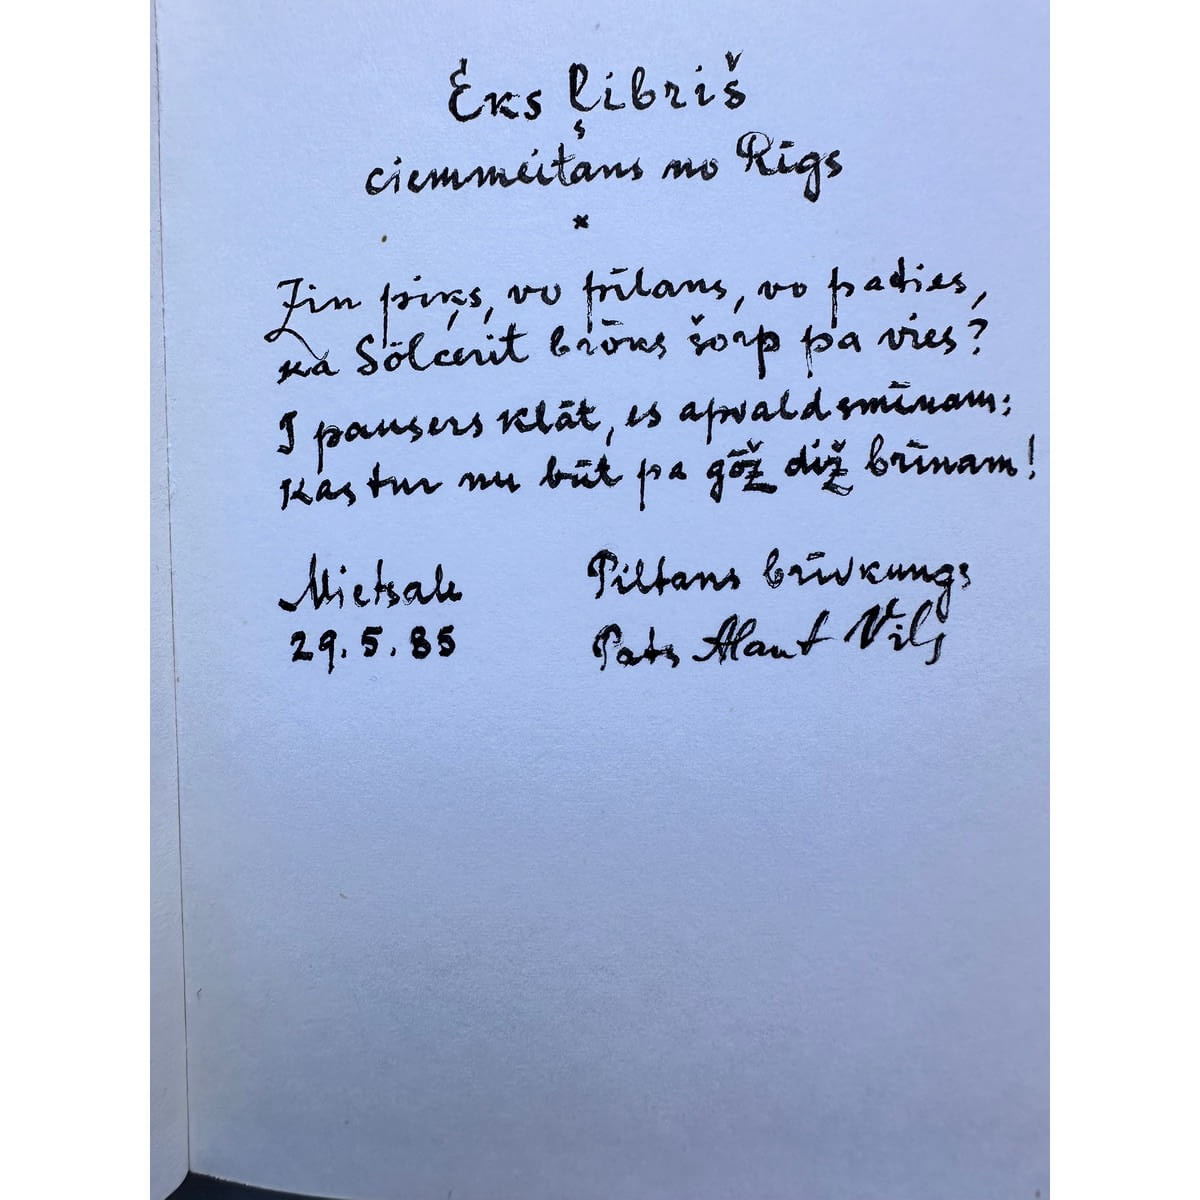 Ėks ļibriš
ciemmeitans no Rīgs
*
Zin piķs, vo pīlans, vo paties,
ka Sölcerit brōks šorp pa vies?
I pausers klāt, es apvaldsmīnam:
Kas tur nu būt pa gōž diž brīnam!
Mietsale Piltans brīvkungs
29.5.85 Pats Alant Vils